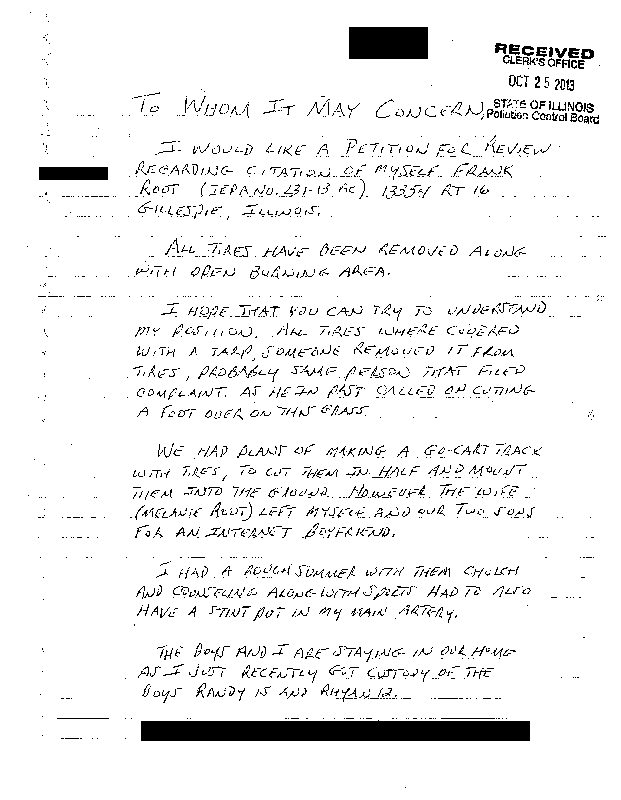 RECEIVED
CLERK'S OFFICE
OCT 25 2013
STATE OF ILLINOIS
Pollution Control Board
TO WHOM IT MAY CONCERN,
I WOULD LIKE A PETITION FOR REVIEW
REGARDING CITATION OF MYSELF FRANK
ROOT (IEPA NO. 231-13 AC) 13354 RT 16
GILLESPIE, ILLINOIS.
ALL TIRES HAVE BEEN REMOVED ALONG
WITH OPEN BURNING AREA.
I HOPE THAT YOU CAN TRY TO UNDERSTAND
MY POSITION. ALL TIRES WHERE COVERED
WITH A TARP, SOMEONE REMOVED IT FROM
TIRES, PROBABLY SAME PERSON THAT FILED
COMPLAINT. AS HE IN PAST CALLED ON CUTING
A FOOT OVER ON THIS GRASS
WE HAD PLANS OF MAKING A GO-CART TRACK
WITH TIRES, TO CUT THEM IN HALF AND MOUNT
THEM INTO THE GROUND. HOWEVER THE WIFE
(MELANIE ROOT) LEFT MYSELF AND OUR TWO SONS
FOR AN INTERNET BOYFRIEND.
I HAD A ROUGH SUMMER WITH THEM CHURCH
AND COUNSELING ALONG WITH SPORTS HAD TO ALSO
HAVE A STINT PUT IN MY MAIN ARTERY.
THE BOYS AND I ARE STAYING IN OUR HOME
AS I JUST RECENTLY GOT CUSTODY OF THE
BOYS RANDY 15 AND RHYAN 12.